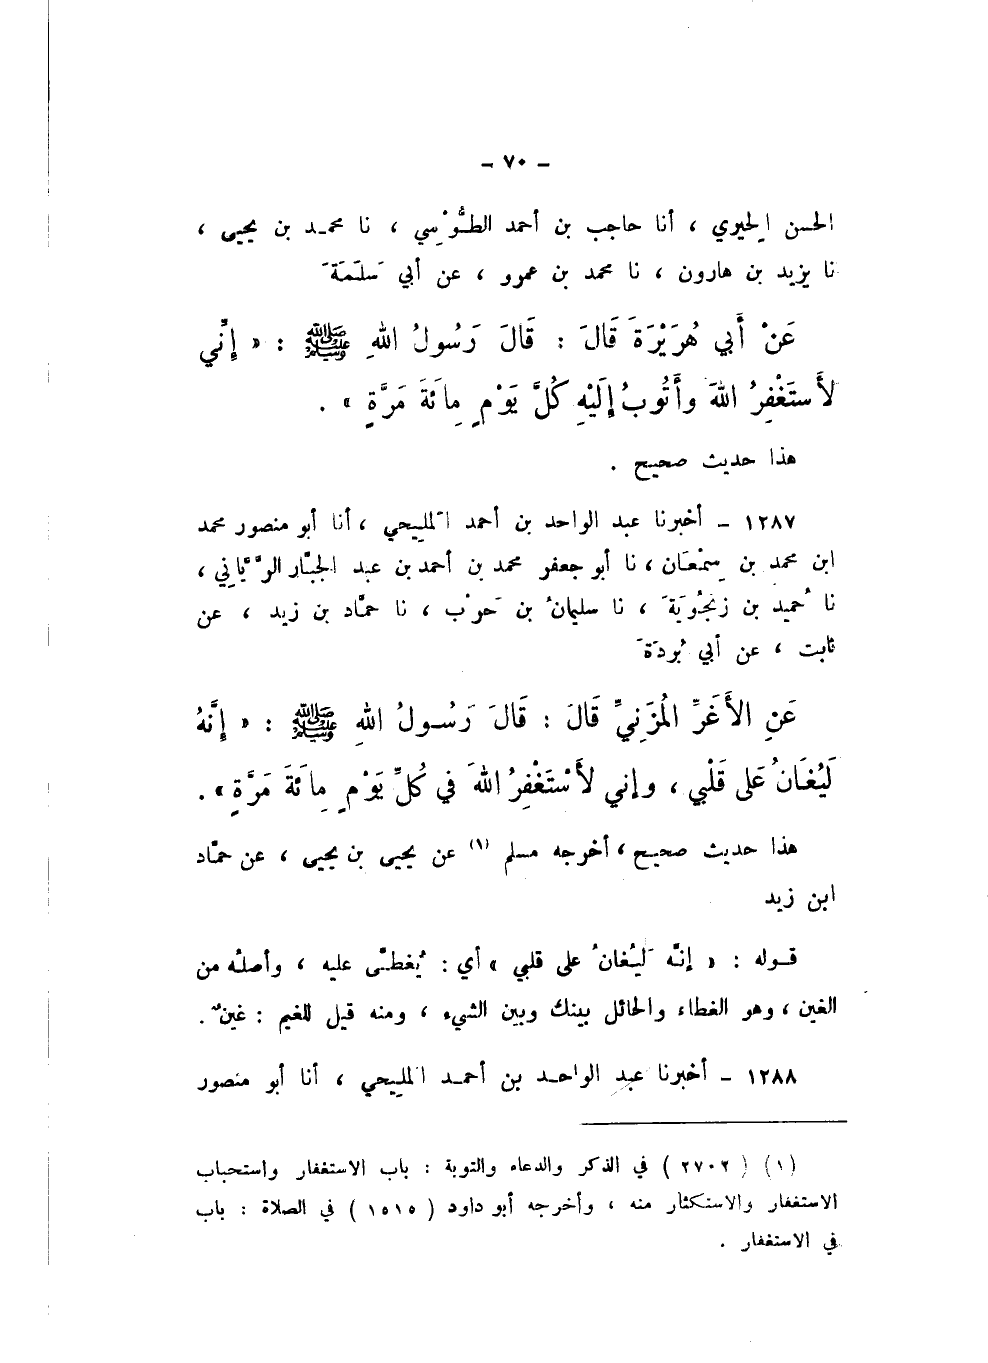 - ٧٠ -
الحسن الحِيري ، أنا حاجب بن أحمد الطُّوْسِي ، نا محمد بن يحيى ،
نا يزيد بن هارون ، نا محمد بن عمرو ، عن أبي سَلَمَةَ
عَنْ أَبي هُرَيْرَةَ قَالَ : قَالَ رَسُولُ اللهِ ﷺ : « إِنِّي
لأَستَغْفِرُ اللهَ وأَتُوبُ إِلَيْهِ كُلَّ يَوْمٍ مِائَةَ مَرَّةٍ » .
هذا حديث صحيح .
١٢٨٧ - أخبرنا عبد الواحد بن أحمد المَلِيحي ، أنا أبو منصور محمد
ابن محمد بن سِمْعَان ، نا أبو جعفر محمد بن أحمد بن عبد الجبَّار الرَّيَّاني ،
نا حُميد بن زَنْجُوَيَةَ ، نا سليمانُ بن حَرْب ، نا حمَّاد بن زيد ، عن
ثابت ، عن أبي بُردَةَ
عَنِ الأَغَرِّ المُزَنِيِّ قَالَ : قَالَ رَسُولُ اللهِ ﷺ : « إِنَّهُ
لَيُغَانُ عَلى قَلْبي ، وإني لأَسْتَغْفِرُ اللهَ في كُلِّ يَوْمٍ مِائَةَ مَرَّةٍ » .
هذا حديث صحيح ، أخرجه مسلم (١) عن يحيى بن يحيى ، عن حمَّاد
ابن زيد
قوله : « إنَّه لَيُغانُ على قلبي » أي : يُغطَّى عليه ، وأصلُه من
الغين ، وهو الغطاء والحائل بينك وبين الشيء ، ومنه قيل للغيم : غينٌ .
١٢٨٨ - أخبرنا عبد الواحد بن أحمد المَلِيحي ، أنا أبو منصور
(١) ( ٢٧٠٢ ) في الذكر والدعاء والتوبة : باب الاستغفار واستحباب
الاستغفار والاستكثار منه ، وأخرجه أبو داود ( ١٥١٥ ) في الصلاة : باب
في الاستغفار .